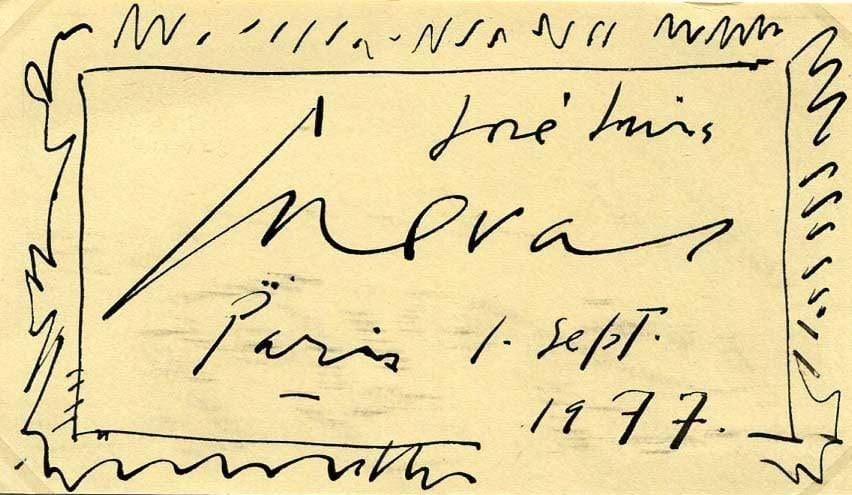 José Luis
Novas
Paris 1. Sept.
1977.